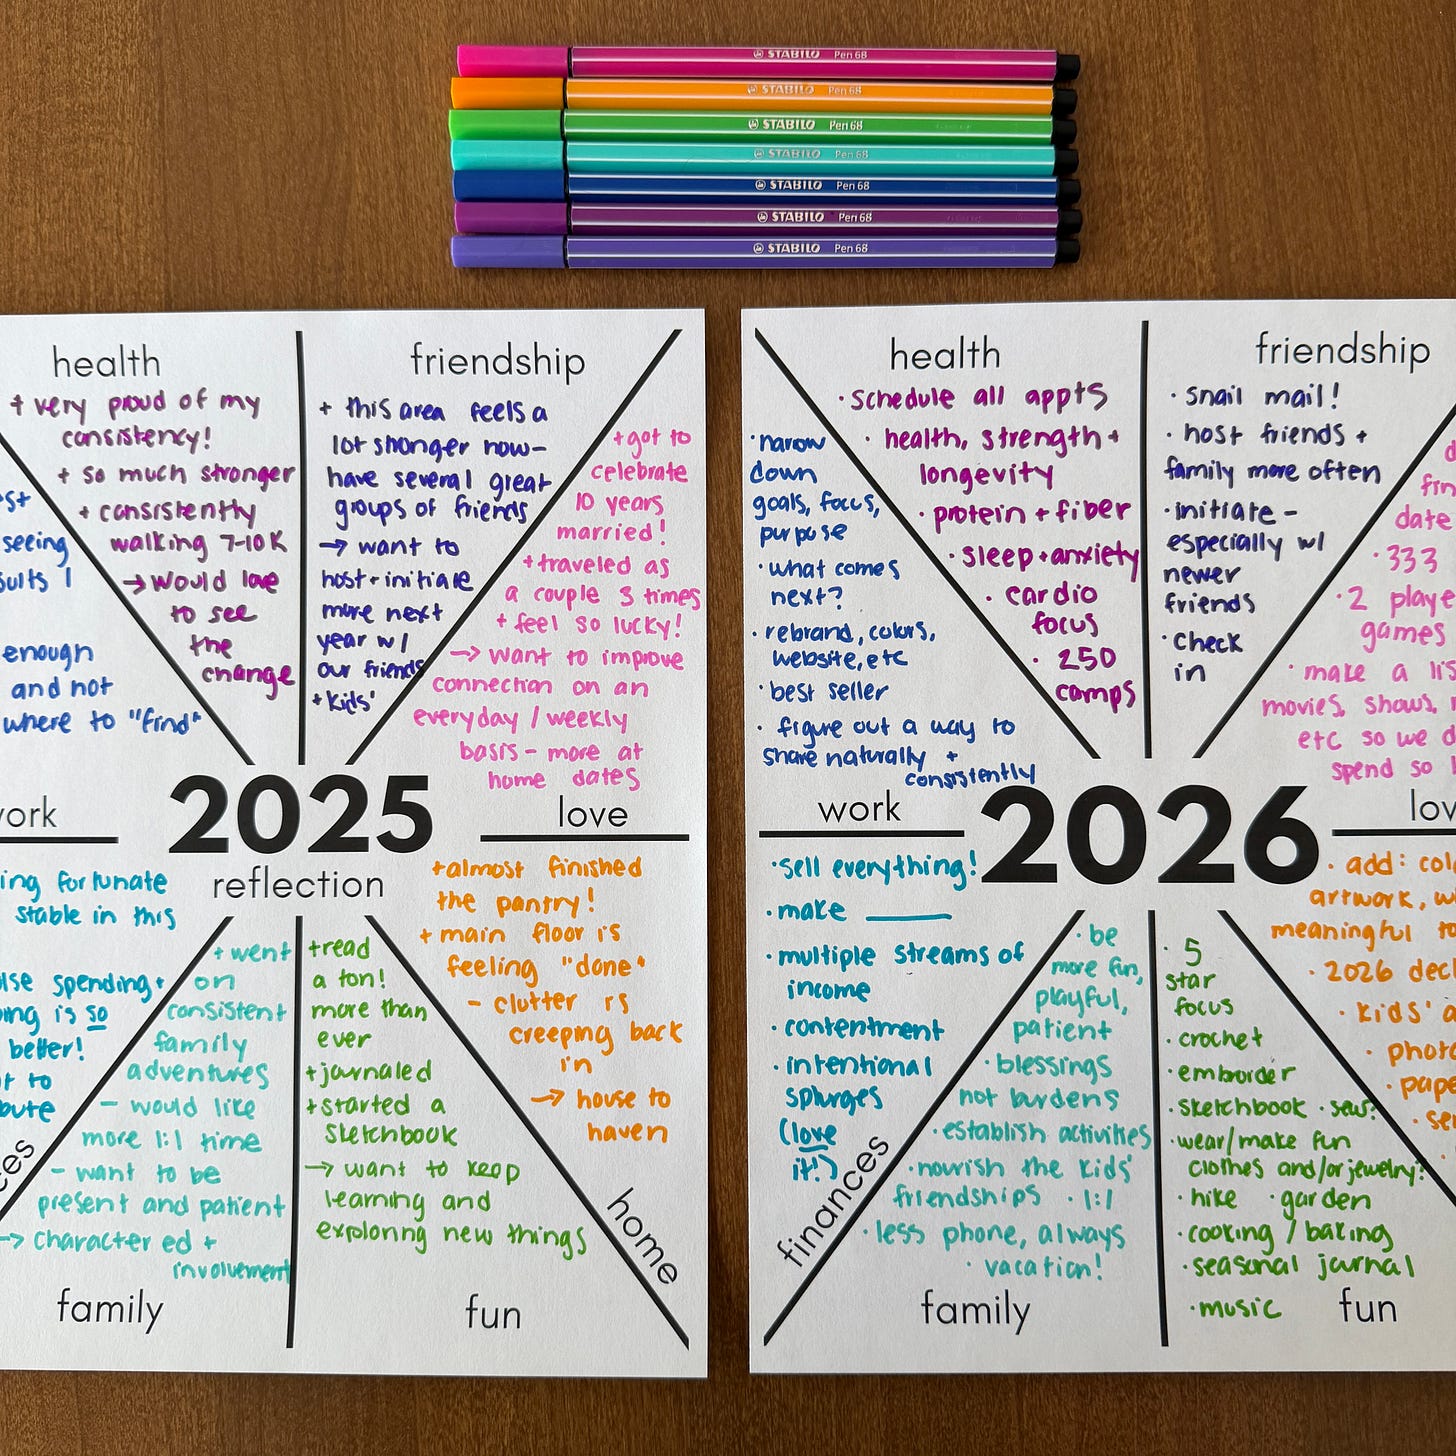 STABILO Pen 68
STABILO Pen 68
STABILO Pen 68
STABILO Pen 68
STABILO Pen 68
STABILO Pen 68
STABILO Pen 68
health
+ very proud of my
consistency!
+ so much stronger
+ consistently
walking 7-10K
→ would love
to see
the
change
friendship
+ this area feels a
lot stronger now-
have several great
groups of friends
→ want to
host + initiate
more next
year w/
our friends
+ kids'
+got to
celebrate
10 years
married!
+traveled as
a couple 3 times
+ feel so lucky!
→ want to improve
connection on an
everyday / weekly
basis - more at
home dates
love
seeing
enough
and not
where to "find"
2025
reflection
fortunate
stable in this
spending+
is so
better!
to
+ went
on
consistent
family
adventures
- would like
more 1:1 time
- want to be
present and patient
→ character ed +
involvement
family
+read
a ton!
more than
ever
+journaled
+started a
sketchbook
→ want to keep
learning and
exploring new things
fun
+almost finished
the pantry!
+ main floor is
feeling "done"
- clutter is
creeping back
in
→ house to
haven
home
health
· schedule all appts
· health, strength +
longevity
· protein + fiber
· sleep + anxiety
· cardio
focus
· 250
camps
friendship
· snail mail!
· host friends +
family more often
· initiate -
especially w/
newer
friends
· check
in
· narrow
down
goals, focus,
purpose
· what comes
next?
· rebrand, colors,
website, etc
· best seller
· figure out a way to
share naturally +
consistently
work
date
· 333
· 2
games
· make a
movies, shows,
etc so we
spend so
2026
· sell everything!
· make ____
· multiple streams of
income
· contentment
· intentional
splurges
(love
it!)
finances
· be
more fun,
playful,
patient
· blessings
not burdens
· establish activities
· nourish the kids'
friendships · 1:1
· less phone, always
· vacation!
family
· 5
star
focus
· crochet
· embroider
· sketchbook · sew?
· wear/make fun
clothes and/or jewelry?
· hike · garden
· cooking / baking
· seasonal journal
· music
fun
· add:
artwork,
meaningful
· 2026
· kids'